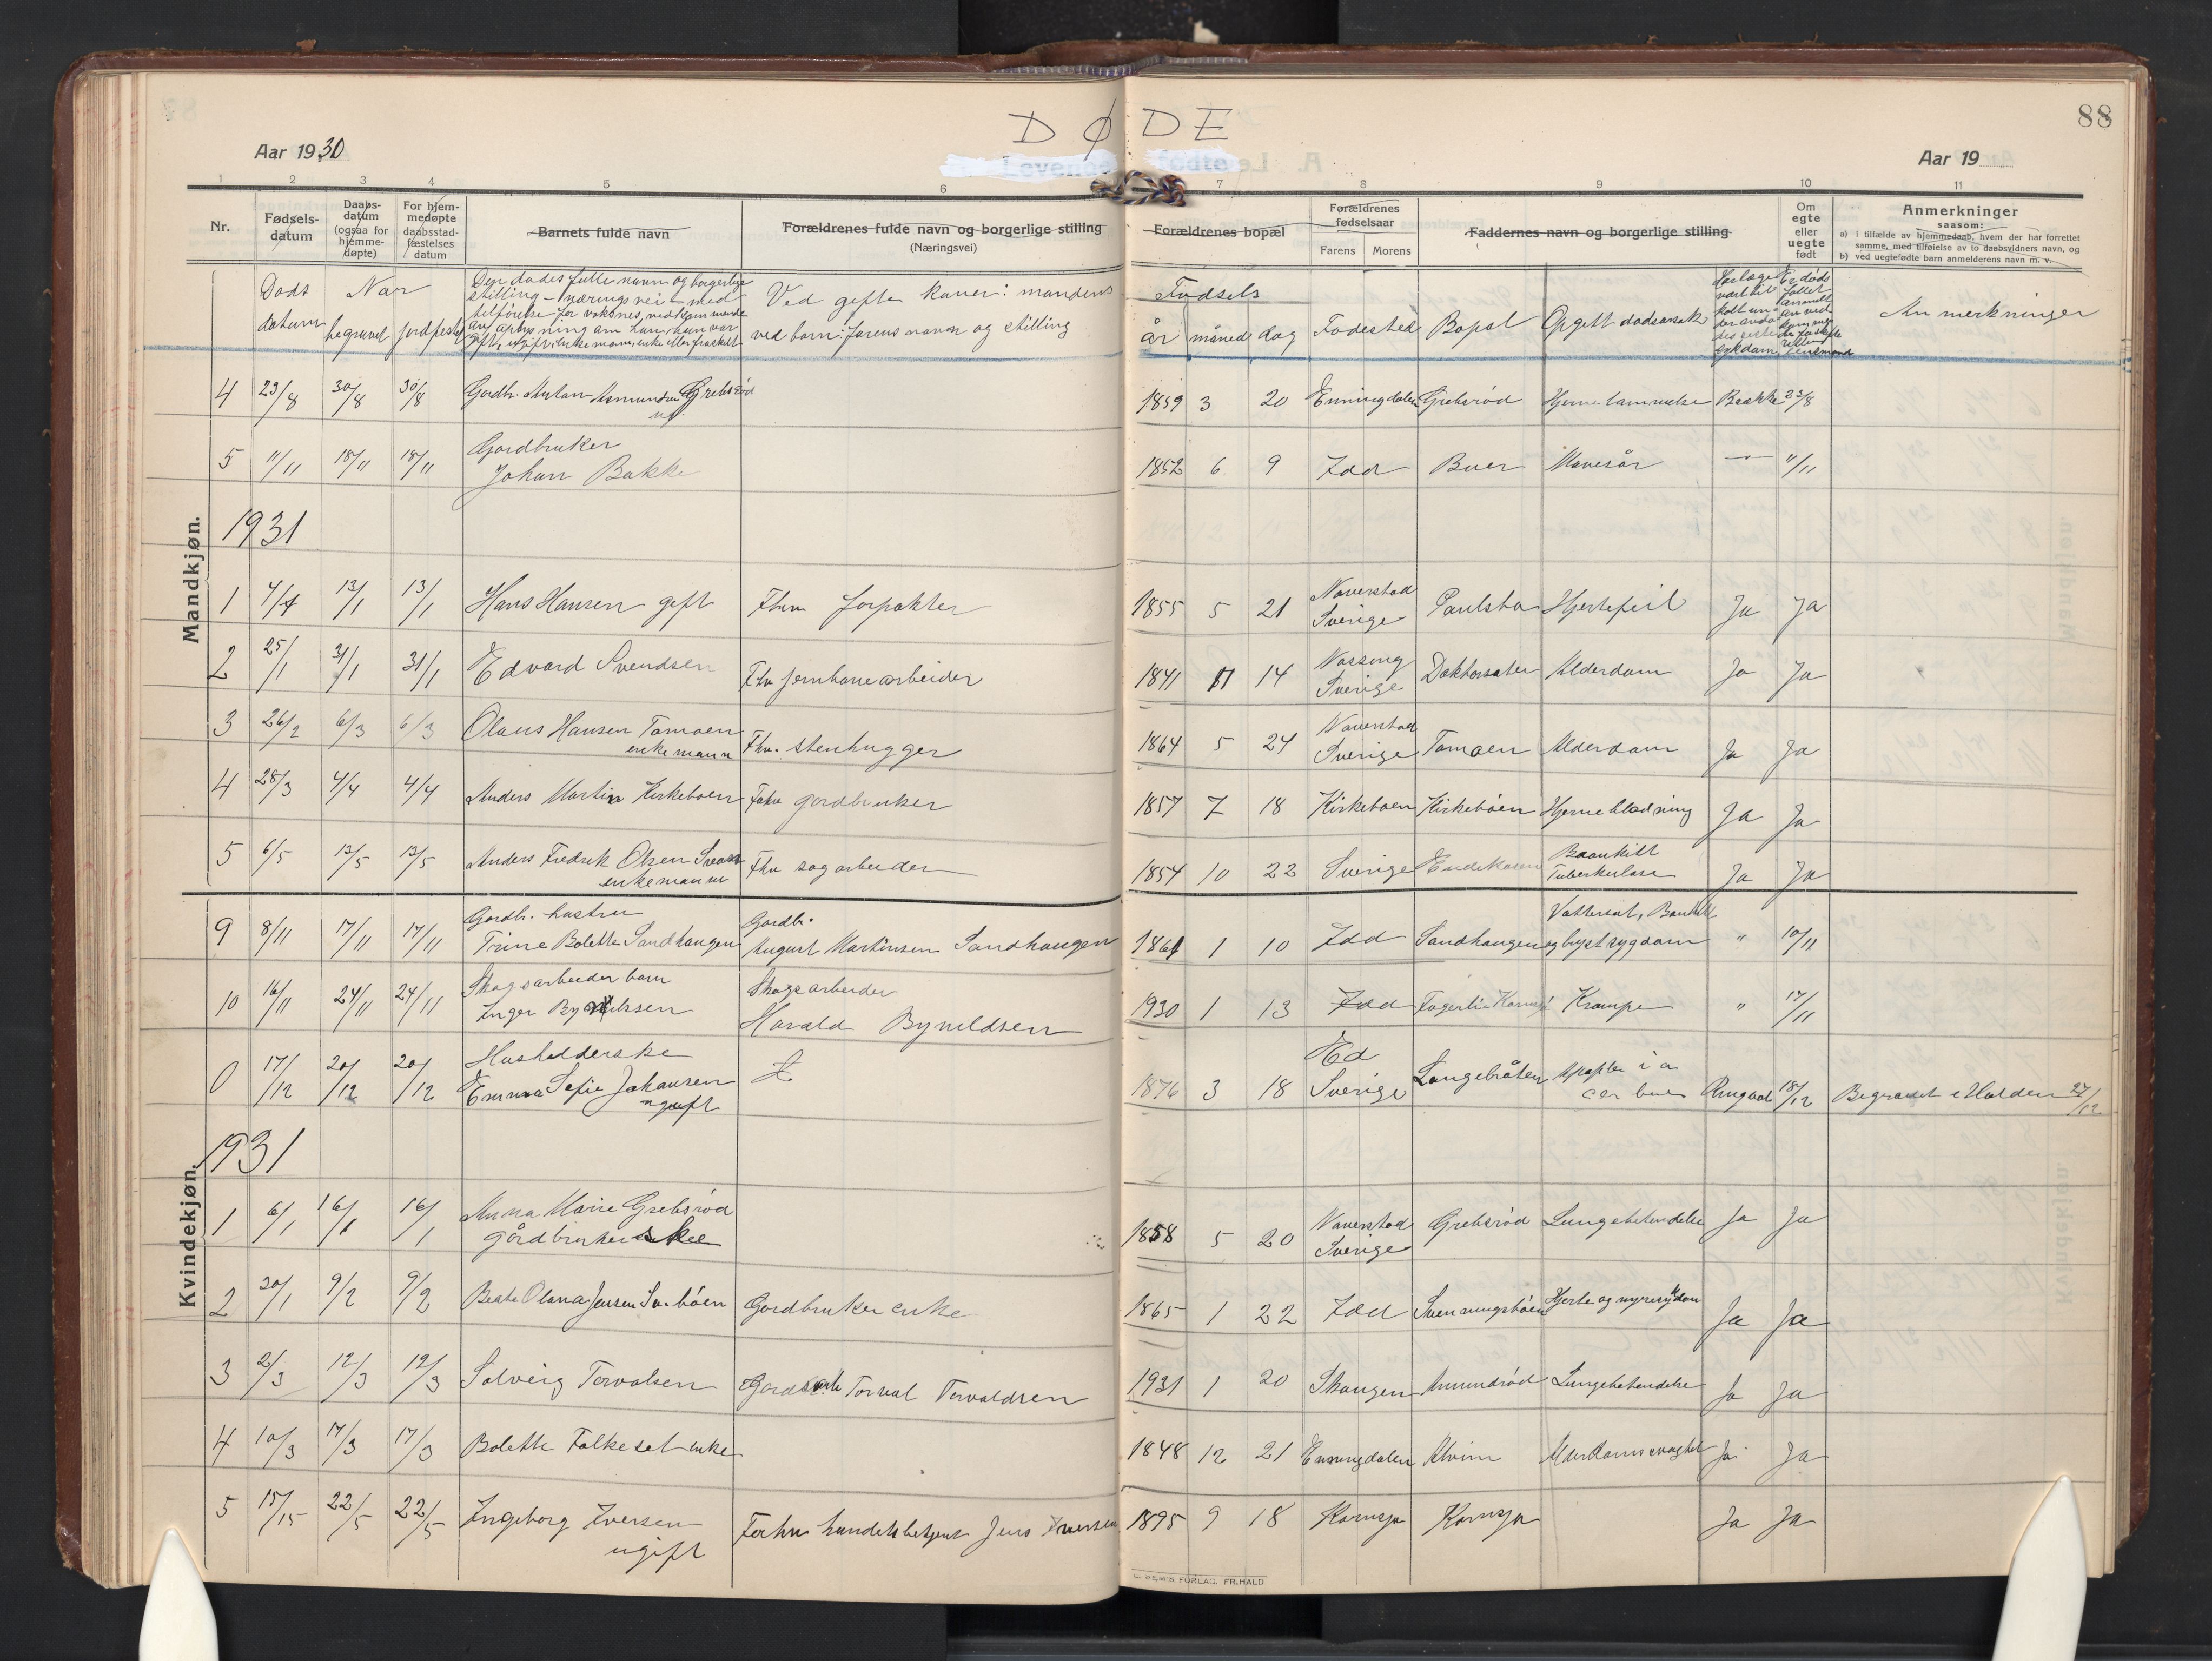 DØDE
88
Aar 1930
Aar 19
1 2 3 4 5 6 7 8 9 10 11
Nr.
Fødsels-
datum
Daabs-
datum
(ogsaa for
hjemme-
døpte)
For hjem-
medøpte
daabsstad-
fæstelses
datum
Barnets fulde navn
Forældrenes fulde navn og borgerlige stilling
(Næringsvei)
Forældrenes bopæl
Forældrenes
fødselsaar
Farens Morens
Faddernes navn og borgerlige stilling
Om
egte
eller
uegte
født
Anmerkninger
saasom:
a) i tilfælde av hjemmedaab, hvem der har forrettet
samme, med tilføielse av to daabsvidners navn, og
b) ved uegtefødte barn anmelderens navn m. v.
Døds
datum
Når
begravet jordfestet
Den dødes fulle navn og borgerlige
stilling - næringsvei - med
Ved gifte koner: mandens
ved barn: farens navn og stilling
Fødsels
år måned dag Fødested Bopæl Opgitt dødsårsak
Anmerkninger
Mandkjøn.
4 23/8 30/8 30/8 Gardbr. Anton Asmundsen Grebsrød
1859 3 20 Enningdalen Grebsrød Hjernelammelse Bakke 23/8
5 11/11 18/11 18/11 Gardbruker
Johan Bakke
1852 6 9 Idd Buer Mavesår — 11/11
1931
1 4/1 13/1 13/1 Hans Hansen gift Fhv. forpakter
1855 5 21 Naverstad
Sverige Paulsbo Hjertefeil Ja Ja
2 25/1 31/1 31/1 Edvard Svendsen Fhv jernbanearbeider
1841 11 14 Sverige Doktorsæter Alderdom Ja Ja
3 26/2 6/3 6/3 Olaus Hansen Tomoen
enkemann Fhv. stenhugger
1864 5 24 Naverstad
Sverige Tomoen Alderdom Ja Ja
4 28/3 4/4 4/4 Anders Martin Kirkeboen Fhv gardbruker
1857 7 18 Kirkeboen Kirkebøen Hjerneblødning Ja Ja
5 6/5 13/5 13/5 Anders Fredrik Olsen
enkemann Fhv sagarbeider
1854 10 22 Sverige
Tuberkulose Ja Ja
Kvindekjøn.
9 8/11 17/11 17/11 Gardbr. hustru
Trine Bolette Sandhaugen
Gardbr.
August Martinsen Sandhaugen
1861 1 10 Idd Sandhaugen Vattersot, " 10/11
10 16/11 24/11 24/11 Skogsarbeider barn
Inger
Skogsarbeider
Harald Bynildsen
1930 1 13 Idd Fagerlie Kornsjø Krampe " 17/11
0 17/12 20/12 20/12 Husholderske
Emma Sofie Johansen
ugift
1876 3 18 Ed
Sverige Langebråten 18/12 Begravet i Halden 27/12
1931
1 6/1 16/1 16/1 Anna Marie Grebsrød
gårdbruker
1858 5 20 Naverstad
Sverige Grebsrød Lungebetendelse Ja Ja
2 30/1 9/2 9/2 Beate Olava Jensen Sv.bøen Gardbruker enke
1865 1 22 Idd Svenningsbøen Hjerte og nyresykdom Ja Ja
3 2/3 12/3 12/3 Solveig Torvalsen Torval Torvaldsen
1931 1 20 Skaugen Amundrød Lungebetendelse Ja Ja
4 10/3 17/3 17/3 Bolette Folkeset enke
1848 12 21 Enningdalen Ja Ja
5 15/15 22/5 22/5 Ingeborg Iversen
ugift Forhv handelsbetjent Jens Iversen
1895 9 18 Kornsjø Kornsjø Ja Ja
FORLAG. FR. HALD